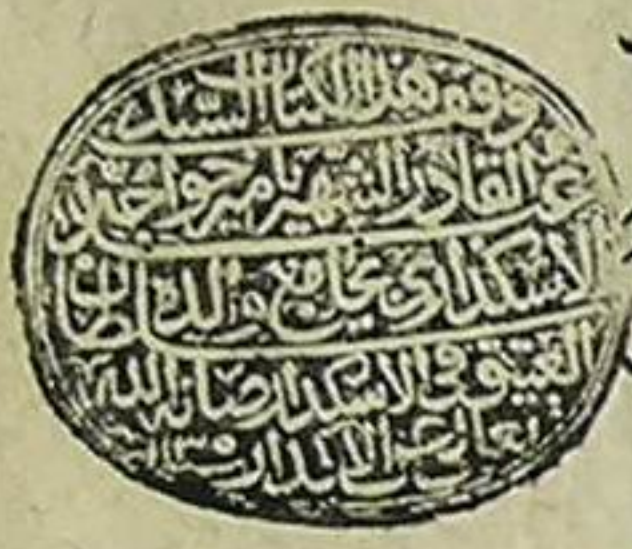 وقف هذا الكتاب السيد
عبد القادر الشهير بامير خواجه
الاسكداري بجامع والدة سلطان
العتيق في الاسكدار صانه الله
تعالى عن الاندار سنة